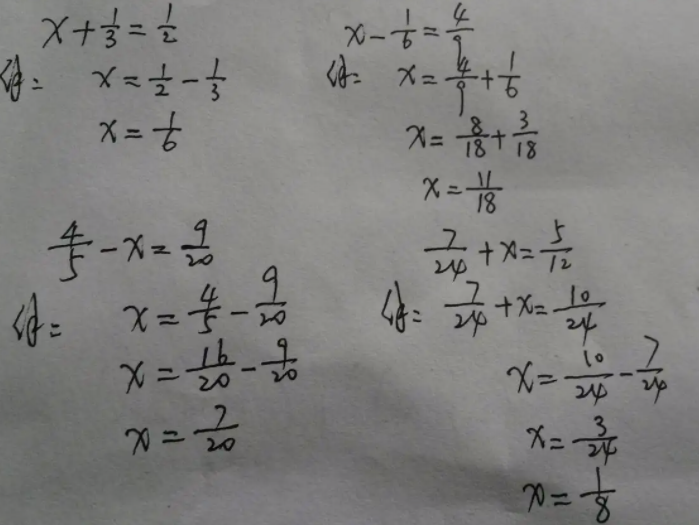 x + 1/3 = 1/2
解: x = 1/2 - 1/3
x = 1/6
x - 1/6 = 4/9
解: x = 4/9 + 1/6
x = 8/18 + 3/18
x = 11/18
4/5 - x = 9/20
解: x = 4/5 - 9/20
x = 16/20 - 9/20
x = 7/20
7/24 + x = 5/12
解: 7/24 + x = 10/24
x = 10/24 - 7/24
x = 3/24
x = 1/8